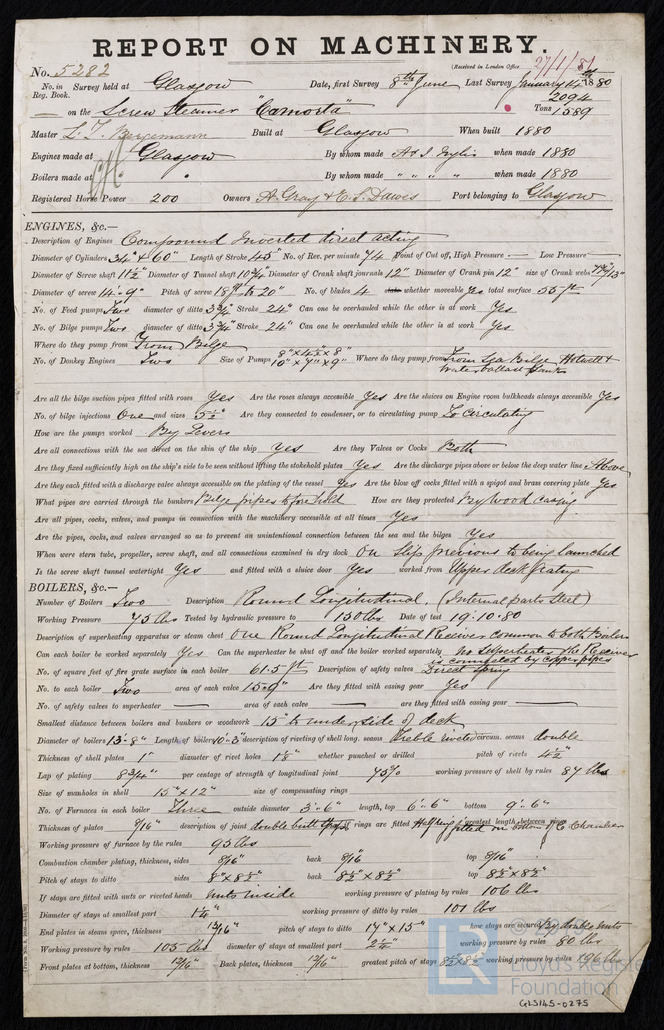 REPORT ON MACHINERY.
No. 5282
(Received in London Office 27/1/81
No. in Survey held at Glasgow Date, first Survey 8th June Last Survey January 14th 1880
Reg. Book.
2094
on the Screw Steamer "Camorta" Tons 1589
Master L. T. Bergemann Built at Glasgow When built 1880
Engines made at Glasgow By whom made A & J. Inglis when made 1880
Boilers made at " By whom made " " " " when made 1880
Registered Horse Power 200 Owners A. Gray & E. S. Dawes Port belonging to Glasgow
ENGINES, &c.—
Description of Engines Compound Inverted direct acting
Diameter of Cylinders 34" & 60" Length of Stroke 45" No. of Rev. per minute 74 Point of Cut off, High Pressure — Low Pressure
Diameter of Screw shaft 11½" Diameter of Tunnel shaft 10¾" Diameter of Crank shaft journals 12" Diameter of Crank pin 12" size of Crank webs
Diameter of screw 14'-9" Pitch of screw 18ft to 20" No. of blades 4 state whether moveable Yes total surface 55 ft
No. of Feed pumps Two diameter of ditto 3¾" Stroke 24" Can one be overhauled while the other is at work Yes
No. of Bilge pumps Two diameter of ditto 3¾" Stroke 24" Can one be overhauled while the other is at work Yes
Where do they pump from From Bilge
No. of Donkey Engines Two Size of Pumps 8"×4½"×8" 10"×7"×9" Where do they pump from From Sea Bilge Hotwell &
Water ballast tanks
Are all the bilge suction pipes fitted with roses Yes Are the roses always accessible Yes Are the sluices on Engine room bulkheads always accessible Yes
No. of bilge injections One and sizes 5½" Are they connected to condenser, or to circulating pump To Circulating
How are the pumps worked By Levers
Are all connections with the sea direct on the skin of the ship Yes Are they Valves or Cocks Both
Are they fixed sufficiently high on the ship's side to be seen without lifting the stokehold plates Yes Are the discharge pipes above or below the deep water line Above
Are they each fitted with a discharge valve always accessible on the plating of the vessel Yes Are the blow off cocks fitted with a spigot and brass covering plate Yes
What pipes are carried through the bunkers Bilge pipes to fore hold How are they protected By wood casing
Are all pipes, cocks, valves, and pumps in connection with the machinery accessible at all times Yes
Are the pipes, cocks, and valves arranged so as to prevent an unintentional connection between the sea and the bilges Yes
When were stern tube, propeller, screw shaft, and all connections examined in dry dock On Slip previous to being launched
Is the screw shaft tunnel watertight Yes and fitted with a sluice door Yes worked from Upper deck grating
BOILERS, &c.—
Number of Boilers Two Description Round Longitudinal. (Internal parts Steel)
Working Pressure 75 lbs Tested by hydraulic pressure to 150 lbs Date of test 19.10.80
Description of superheating apparatus or steam chest One Round Longitudinal Receiver common to both Boilers
Can each boiler be worked separately Yes Can the superheater be shut off and the boiler worked separately No Superheater The Receiver
is connected by copper pipes
No. of square feet of fire grate surface in each boiler 61.5 ft Description of safety valves Direct Spring
No. to each boiler Two area of each valve 15.9" Are they fitted with easing gear Yes
No. of safety valves to superheater — area of each valve — are they fitted with easing gear —
Smallest distance between boilers and bunkers or woodwork 15" to under side of deck
Diameter of boilers 13'-8" Length of boilers 10'-3" description of riveting of shell long. seams Treble riveted circum. seams double
Thickness of shell plates 1" diameter of rivet holes 1⅛" whether punched or drilled pitch of rivets 4½"
Lap of plating 8¾" per centage of strength of longitudinal joint 75% working pressure of shell by rules 87 lbs
Size of manholes in shell 15"×12" size of compensating rings
No. of Furnaces in each boiler Three outside diameter 3'-6" length, top 6'-6" bottom 9'-6"
Thickness of plates 9/16" description of joint double butt straps if rings are fitted Half ring fitted on bottom of C Chamber greatest length between rings
Working pressure of furnace by the rules 95 lbs
Combustion chamber plating, thickness, sides 9/16" back 9/16 top 9/16"
Pitch of stays to ditto sides 8"×8½" back 8½"×8½" top 8½"×8½"
If stays are fitted with nuts or riveted heads nuts inside working pressure of plating by rules 106 lbs
Diameter of stays at smallest part 1¼" working pressure of ditto by rules 101 lbs
End plates in steam space, thickness 13/16" pitch of stays to ditto 17"×15" how stays are secured By double nuts
Working pressure by rules 105 lbs diameter of stays at smallest part 2½" working pressure by rules 80 lbs
Front plates at bottom, thickness 12/16" Back plates, thickness 12/16" greatest pitch of stays 8½×8½ working pressure by rules 196 lbs
LR
Lloyd's Register
Foundation
GLS145-0275